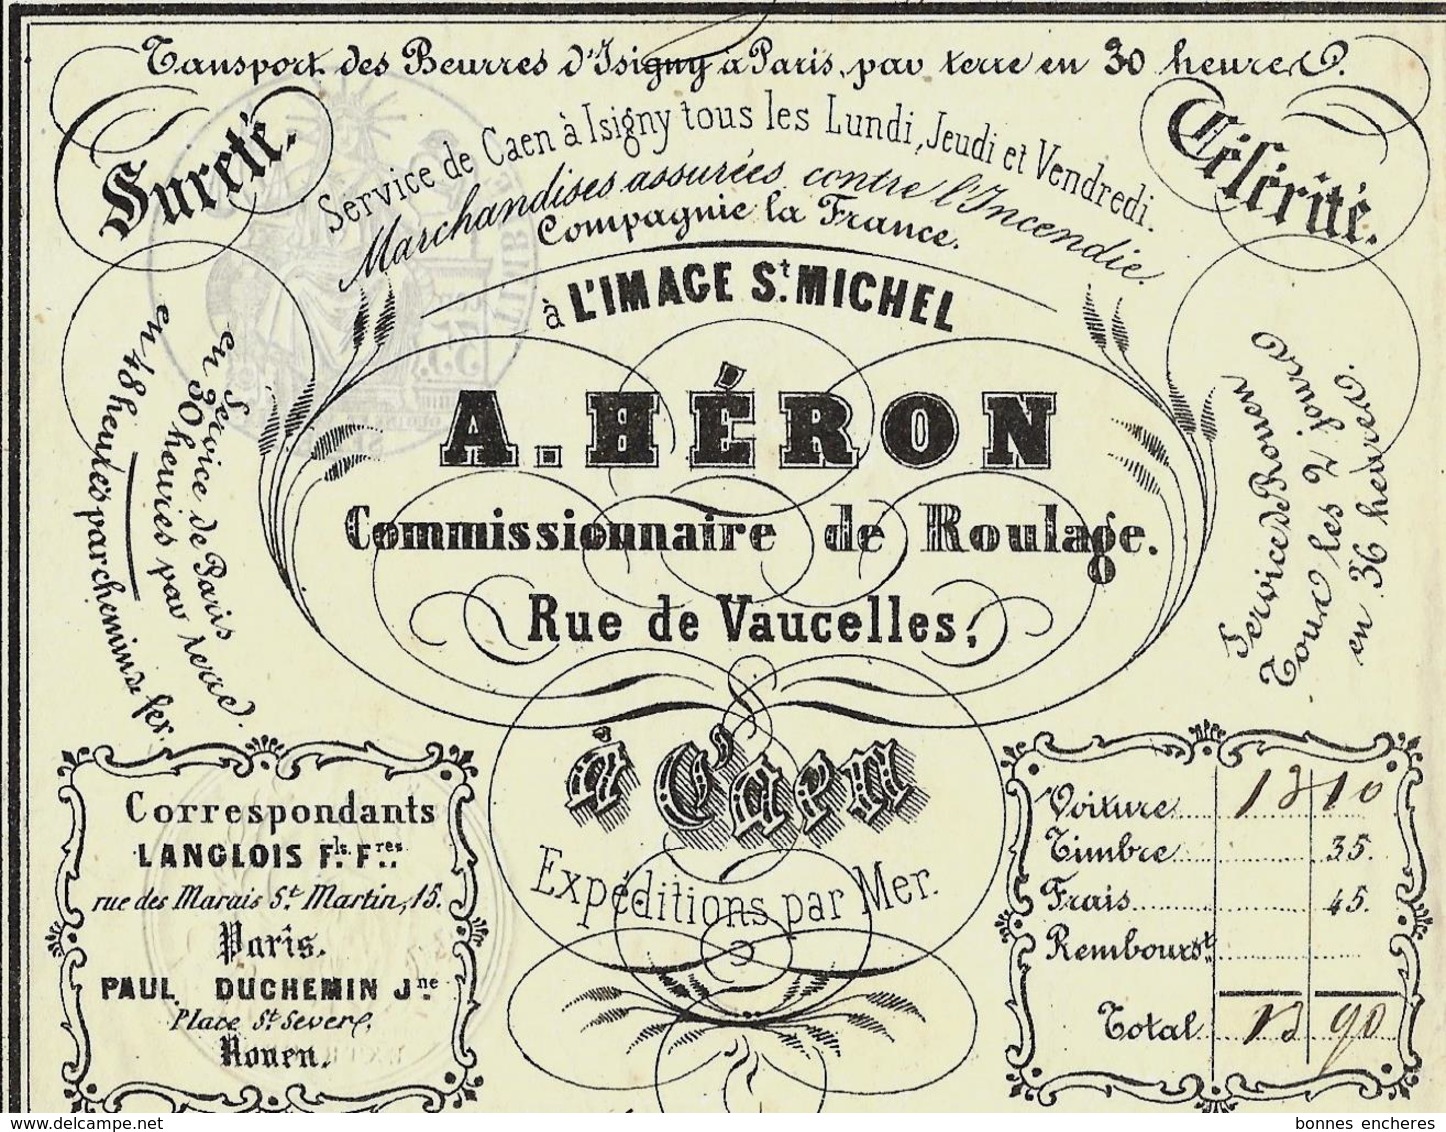 Transport des Beurres d'Isigny à Paris, par terre en 30 heures.
Sureté.
Célérité.
Service de Caen à Isigny tous les Lundi, Jeudi et Vendredi.
Marchandises assurées contre l'Incendie.
Compagnie la France.
à L'IMAGE St. MICHEL
A. HÉRON
Commissionnaire de Roulage.
Rue de Vaucelles,
à Caen
Expéditions par Mer.
Service de Paris
en 30 heures par terre.
en 48 heures par chemin de fer.
Service de Rouen
Tous les 2 jours
en 36 heures.
Correspondants
LANGLOIS Fls. Fres.
rue des Marais St. Martin, 15.
Paris.
PAUL DUCHEMIN Jne.
Place St. Sever,
Rouen.
Voiture 12 10
Timbre 35.
Frais 45.
Rembourst.
Total 12 90
www.delcampe.net
bonnes encheres